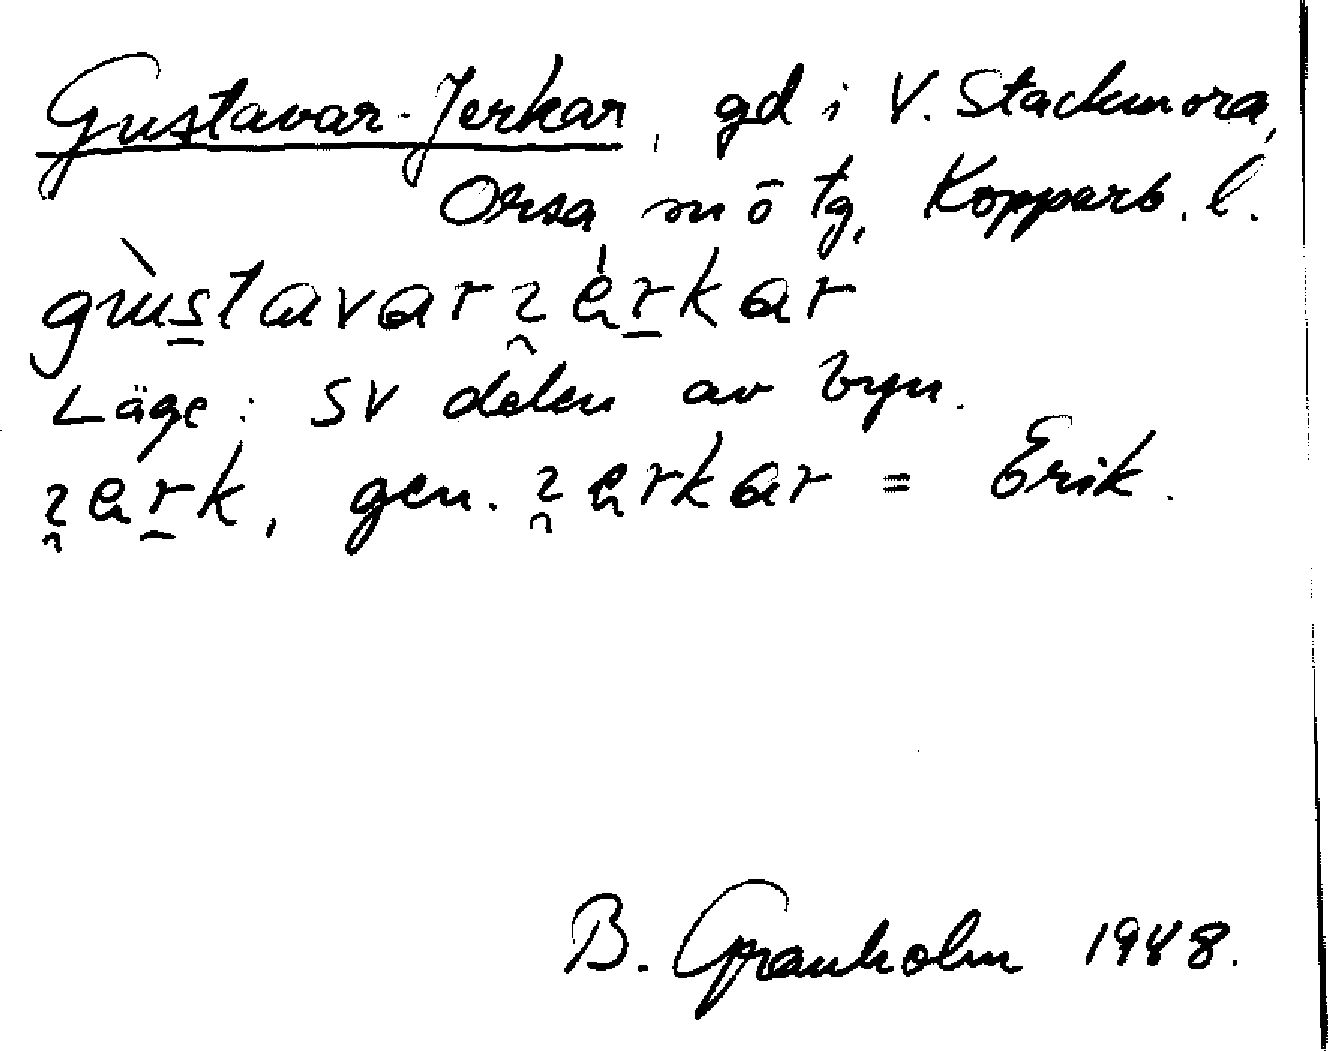 Gustavar-Jerkar, gd i V. Stackmora,
Orsa sn ö tg, Kopparb. l.
gùstavarɿ̯érkar
Läge: SV delen av byn.
ɿ̯erk, gen. ɿ̯erkar = Erik.
B. Granholm 1988.